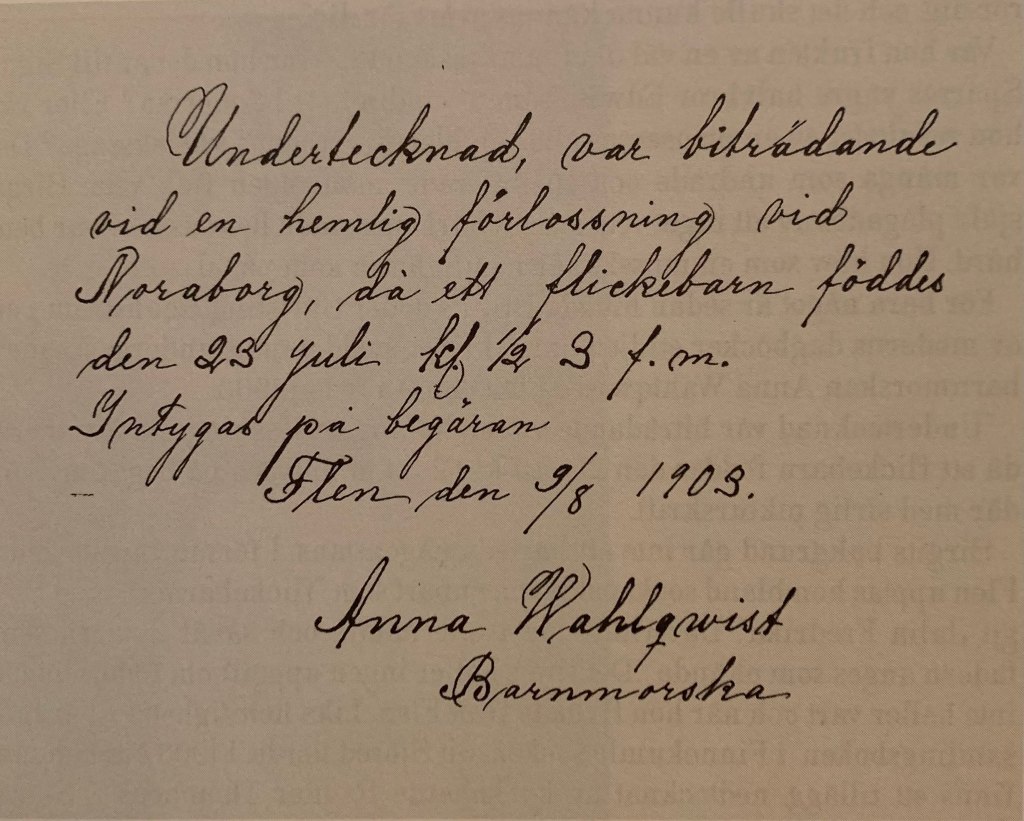 Undertecknad, var biträdande
vid en hemlig förlossning vid
Noraborg, då ett flickebarn föddes
den 23 juli kl. 1/2 3 f.m.
Intygas på begäran
Flen den 9/8 1903.
Anna Wahlqwist
Barnmorska